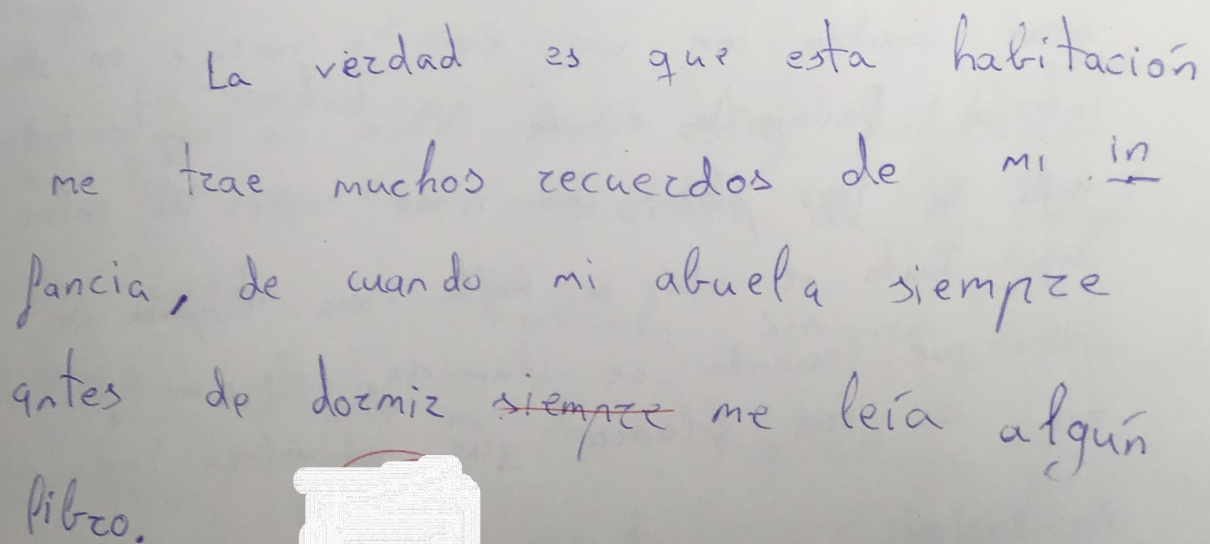 La verdad es que esta habitación
me trae muchos recuerdos de mi in
fancia, de cuando mi abuela siempre
antes de dormir siempre me leía algún
libro.